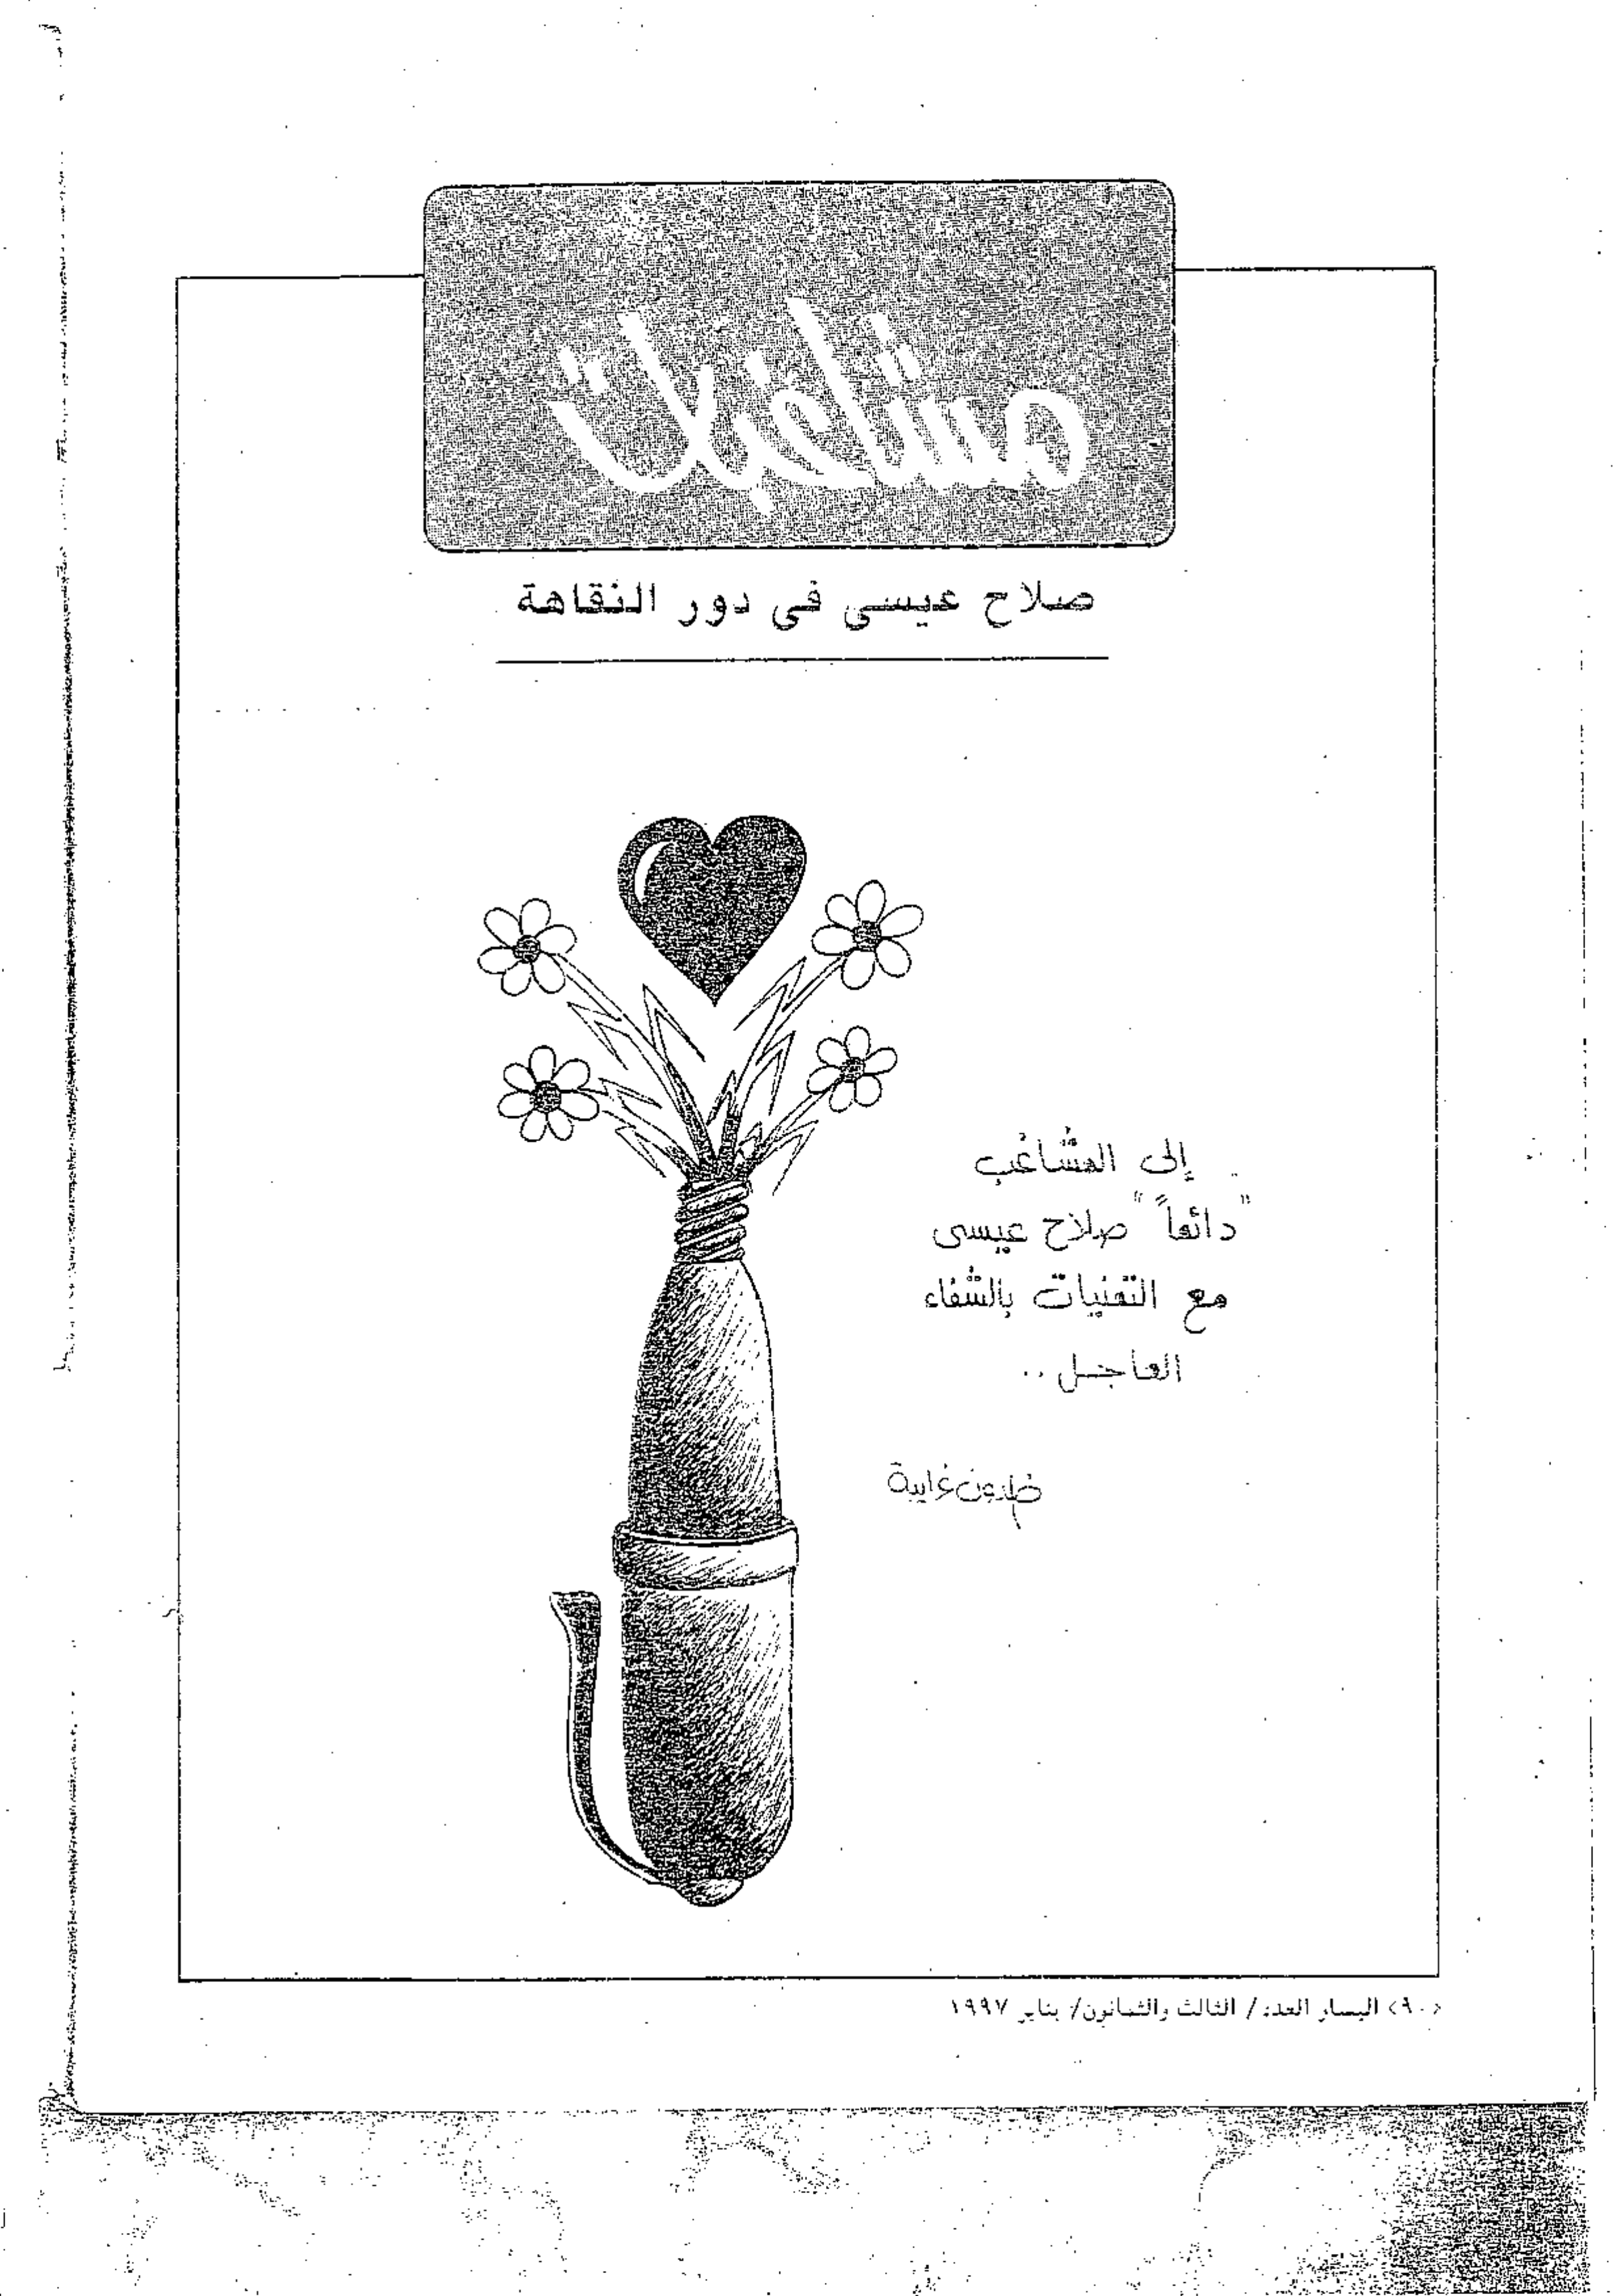 مشاغبات
صلاح عيسى فى دور النقاهة
إلى المشاغب
"دائماً" صلاح عيسى
مع التمنيات بالشفاء
العاجل ..
خلدون غرايبة
<٩٠> اليسار العدد/ الثالث والثمانون/ يناير ١٩٩٧